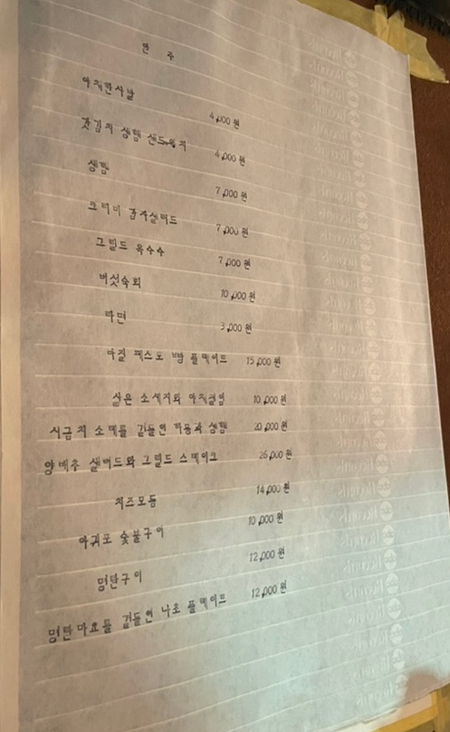 안주
아직한사발
4,000원
갓김치 생햄 샌드위치
4,000원
생햄
7,000원
크리미 감자샐러드
7,000원
그릴드 옥수수
7,000원
버섯숙회
10,000원
라면
3,000원
바질 페스토 빵 플레이트 15,000원
삶은 소세지와 아직절임 10,000원
시금치 소테를 곁들인 하몽과 생햄 20,000원
양배추 샐러드와 그릴드 스테이크 26,000원
치즈모듬 14,000원
아귀포 숯불구이 10,000원
명란구이 12,000원
명란마요를 곁들인 나초 플레이트 12,000원
Records